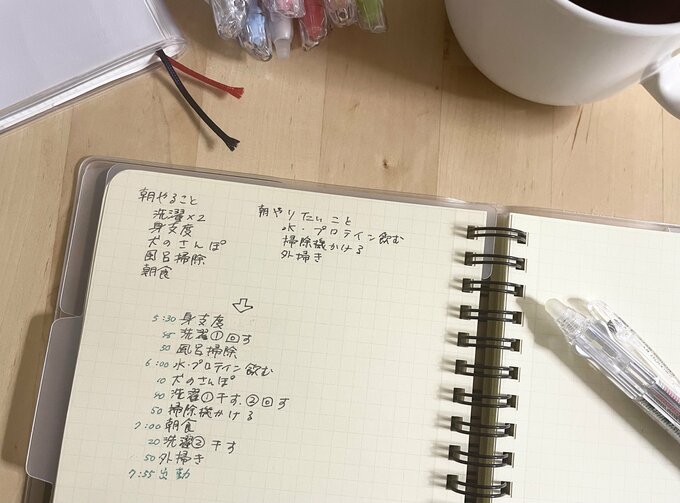 朝やること
洗濯×2
身支度
犬のさんぽ
風呂掃除
朝食
朝やりたいこと
水・プロテイン飲む
掃除機かける
外掃き
5:30 身支度
45 洗濯①回す
50 風呂掃除
6:00 水・プロテイン飲む
10 犬のさんぽ
40 洗濯①干す、②回す
50 掃除機かける
7:00 朝食
20 洗濯②干す
50 外掃き
7:55 出勤